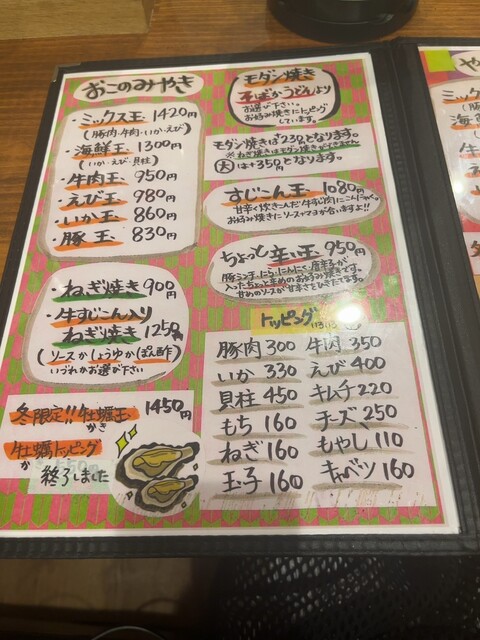 おこのみやき
・ミックス玉 1420円
(豚肉・牛肉・いか・えび)
・海鮮玉 1300円
(いか・えび・貝柱)
・牛肉玉 950円
・えび玉 980円
・いか玉 860円
・豚玉 830円
・ねぎ焼き 900円
・牛すじこん入り
ねぎ焼き 1250円
(ソースかしょうゆかぽん酢)
いづれかお選び下さい
冬限定!!牡蠣玉 1450円
かき
牡蠣トッピング
か
終了しました
モダン焼き
そばかうどんより
お選び下さい。
お好み焼きにトッピング
しています。
モダン焼きは+230円となります。
※ねぎ焼きはモダン焼きができません
大は+350円となります。
すじこん玉 1080円
甘辛く炊きこんだ牛すじ肉にこんにゃく。
お好み焼きにソース+マヨが合いますよ!!
ちょっと辛い玉 950円
豚ミンチ・にら・にんにく・唐辛子が
入ったちょっと辛めのお好み焼きです。
甘めのソースが甘辛さをひきたてます。
トッピング いろいろ
豚肉 300 牛肉 350
いか 330 えび 400
貝柱 450 キムチ 220
もち 160 チーズ 250
ねぎ 160 もやし 110
玉子 160 キャベツ 160
ミック
海